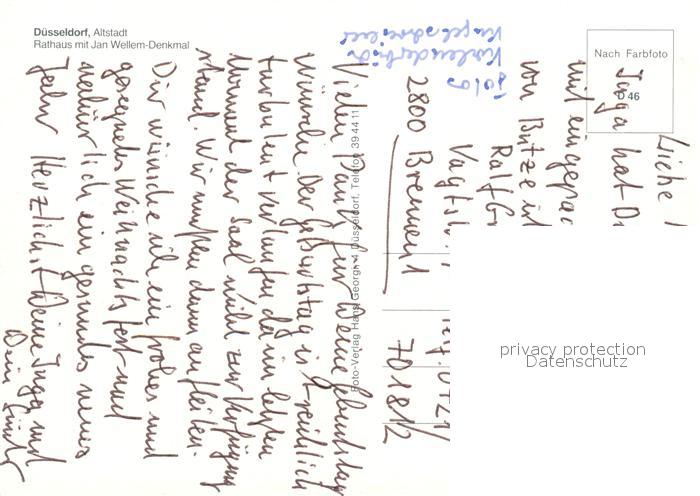 Düsseldorf, Altstadt
Rathaus mit Jan Wellem-Denkmal
Nach Farbfoto
46
Foto-Verlag Hans Georgh 4 Düsseldorf, Telefon 39 44 11
Liebe
Inga hat D
mit eingepac
von Butze ist
Ralf G
Vagtstr.
2800 Bremen 1
701812
Vielen Dank für Deine Geburtstags
wünsche. Der Geburtstag ist reichlich
turbulent verlaufen da im letzten
Moment der Saal nicht zur Verfügung
stand. Wir mußten dann aufteilen.
Dir wünsche ich ein frohes und
gesegnetes Weihnachtsfest und
natürlich ein gesundes neues
Jahr Herzlichst Deine Inga und
Dein
privacy protection
Datenschutz